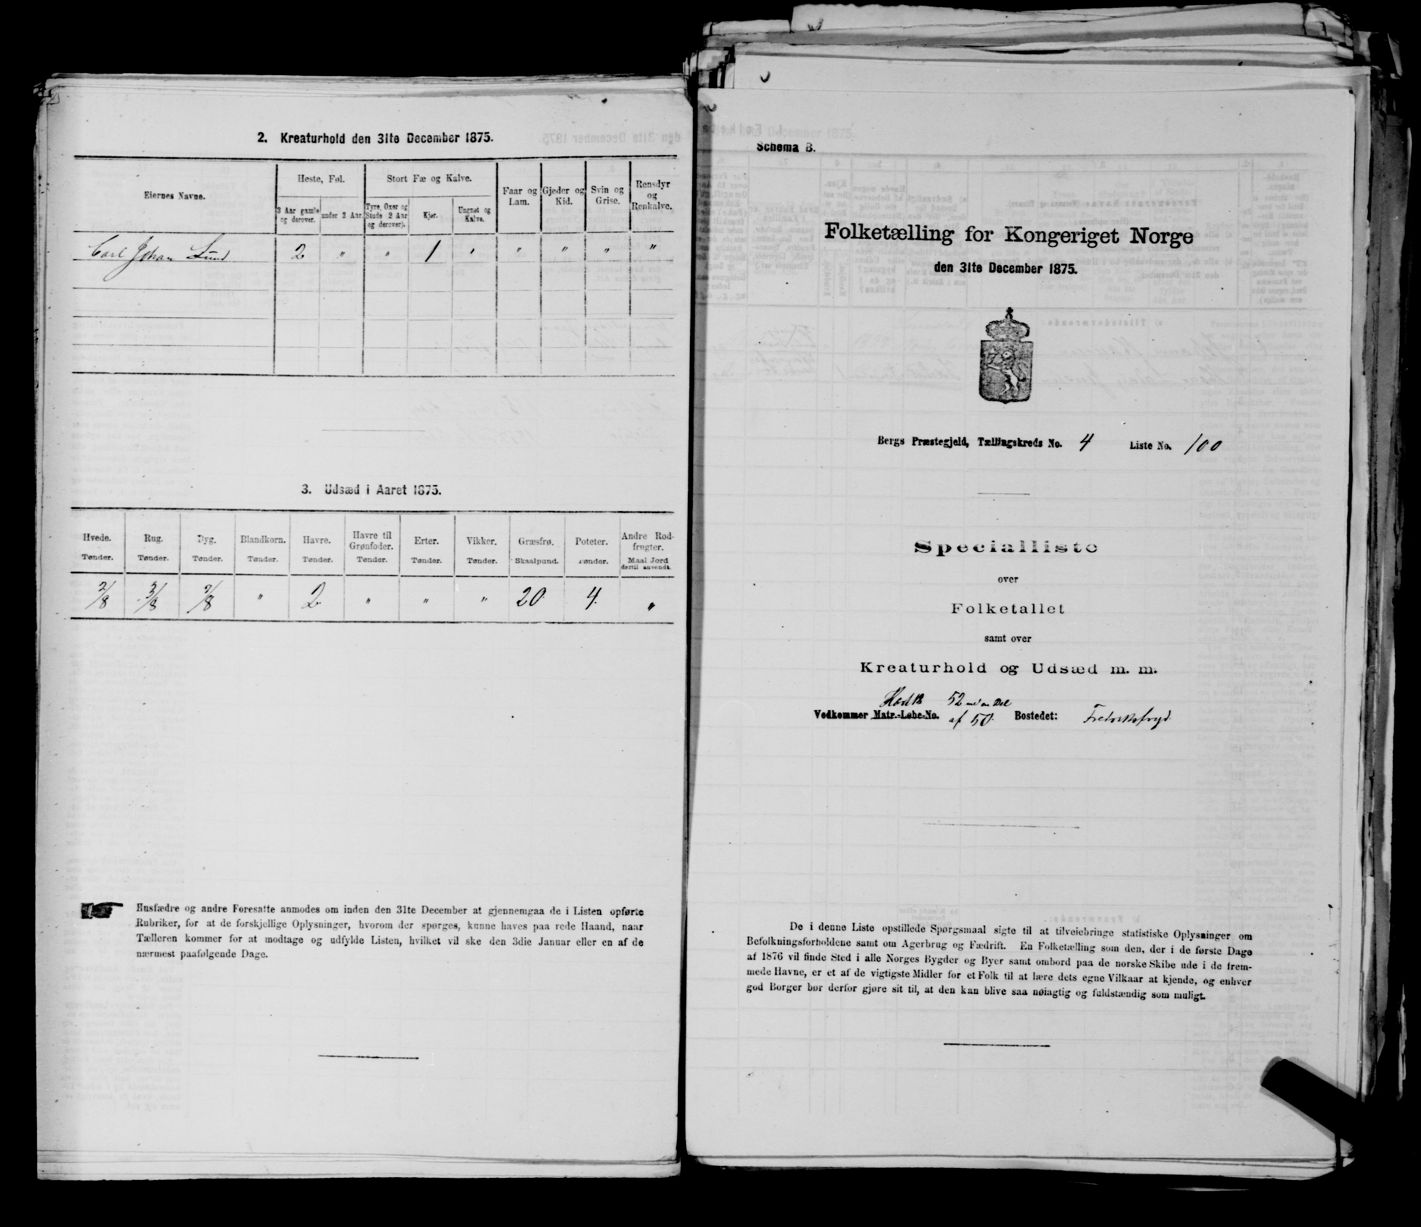 2. Kreaturhold den 31te December 1875.
Eiernes Navne.
Heste, Føl.
Stort Fæ og Kalve.
Faar og Lam.
Gjeder og Kid.
Svin og Grise.
Rensdyr og Renkalve.
3 Aar gamle og derover.
under 3 Aar.
Tyre, Oxer og Stude 2 Aar og derover.
Kjør.
Ungnet og Kalve.
Carl Johan Lund 2 " " 1 " " " " "
3. Udsæd i Aaret 1875.
Hvede. Rug. Byg. Blandkorn. Havre. Havre til Grønfoder. Erter. Vikker. Græsfrø. Poteter. Andre Rodfrugter.
Tønder. Tønder. Tønder. Tønder. Tønder. Tønder. Tønder. Tønder. Skaalpund. Tønder. Maal Jord dertil anvendt.
2/8 3/8 7/8 " 2 " " " 20 4 "
Husfædre og andre Foresatte anmodes om inden den 31te December at gjennemgaa de i Listen opførte
Rubriker, for at de forskjellige Oplysninger, hvorom der spørges, kunne haves paa rede Haand, naar
Tælleren kommer for at modtage og udfylde Listen, hvilket vil ske den 3die Januar eller en af de
nærmest paafølgende Dage.
Schema B.
Folketælling for Kongeriget Norge
den 31te December 1875.
Bergs Præstegjeld, Tællingskreds No. 4 Liste No. 100
Specialliste
over
Folketallet
samt over
Kreaturhold og Udsæd m. m.
52
Vedkommer Matr.-Løbe-No. af 50 Bostedet:
De i denne Liste opstillede Spørgsmaal sigte til at tilveiebringe statistiske Oplysninger om
Befolkningsforholdene samt om Agerbrug og Fædrift. En Folketælling som den, der i de første Dage
af 1876 vil finde Sted i alle Norges Bygder og Byer samt ombord paa de norske Skibe ude i de frem-
mede Havne, er et af de vigtigste Midler for et Folk til at lære dets egne Vilkaar at kjende, og enhver
god Borger bør derfor gjøre sit til, at den kan blive saa nøiagtig og fuldstændig som muligt.